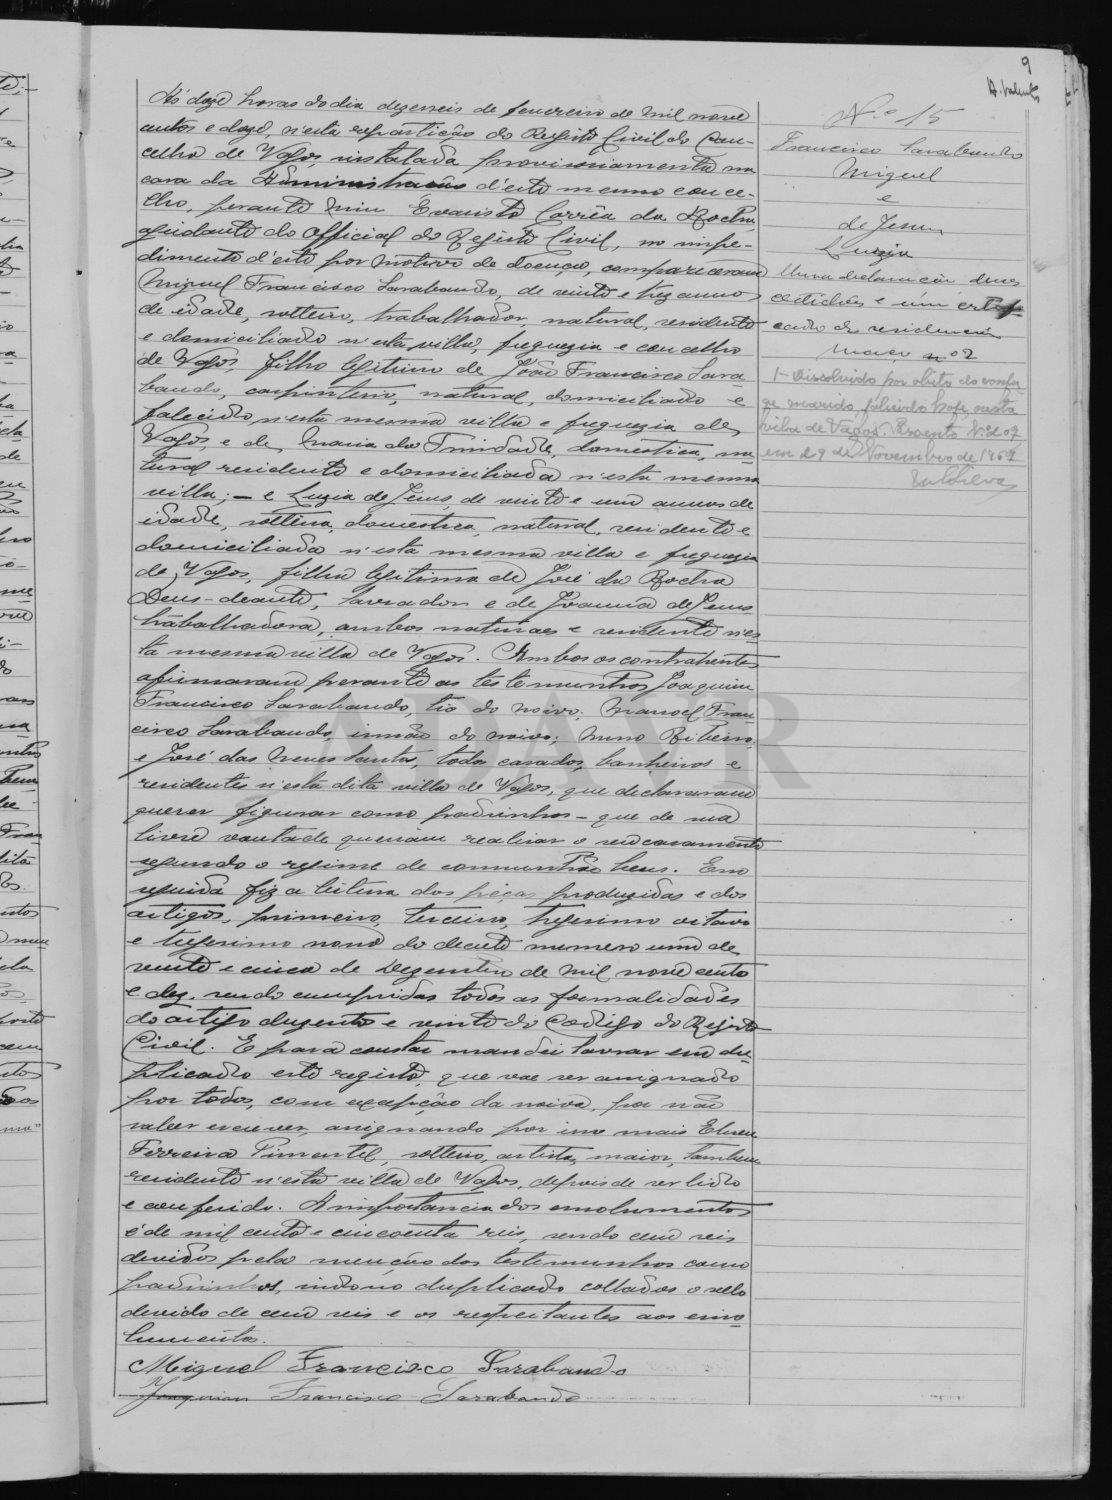 9
A. Valente
Ás doze horas do dia dezeseis de fevereiro de mil nove
centos e doze, n'esta repartição do Registo Civil do Con-
celho de Vagos, instalada provisoriamente na
casa da Administração d'este mesmo conce-
lho, perante mim Evaristo Corrêa da Rocha,
ajudante do Official do Registo Civil, no impe-
dimento d'este por motivo de doença, compareceram
Miguel Francisco Sarabando, de vinte e trez annos
de idade, solteiro, trabalhador, natural, residente
e domiciliado n'esta villa, freguezia e concelho
de Vagos, filho legitimo de João Francisco Sara-
bando, carpinteiro, natural, domiciliado e
falecido n'esta mesma villa e freguezia de
Vagos, e de Maria da Trindade, domestica, na-
tural residente e domiciliada n'esta mesma
villa; — e Luzia de Jesus, de vinte e um annos de
idade, solteira, domestica, natural, residente e
domiciliada n'esta mesma villa e freguezia
de Vagos, filha legitima de José da Rocha
Deus-deante, lavrador e de Joanna de Jesus
trabalhadora, ambos naturaes e residentes n'es-
ta mesma villa de Vagos. Ambos os contrahentes
afirmaram perante as testemunhas Joaquim
Francisco Sarabando, tio do noivo; Manoel Fran-
cisco Sarabando, irmão do noivo; Nuno Ribeiro
e José das Neves Santos, todos casados, banheiros e
residentes n'esta dita villa de Vagos, que declararam
querer figurar como padrinhos - que de sua
livre vontade queriam realisar o seu casamento
segundo o regime de communhão bens. Em
seguida fiz a leitura das peças produzidas e dos
artigos, primeiro, terceiro, trigesimo oitavo
e trigesimo nono do decreto numero um de
vinte e cinco de Dezembro de mil nove cento
e dez, sendo cumpridas todas as formalidades
do artigo duzentos e vinte do Codigo do Registo
Civil. E para constar mandei lavrar em du-
plicado este registo, que vae ser assignado
por todos, com excepção da noiva, por não
saber escrever, assignando por ima mais
Ferreira Pimentel, solteiro, artista, maior, tambem
residente n'esta villa de Vagos, depois de ser lido
e conferido. A importancia dos emolumentos
é de mil cento e cincoenta reis, sendo cem reis
devidos pela menção das testemunhas como
padrinhos, indo no duplicado collados o selo
devido de cem reis e os respeitantes aos emo-
lumentos.
Miguel Francisco Sarabando
Joaquim Francisco Sarabando
N.º 15
Francisco Sarabando
Miguel
e
de Jesus
Luzia
Uma declaração, duas
certidões e um certifi-
cado de residencia
Maço nº 2
1- Dissolvido por obito do conju-
ge marido, falecido hoje, nesta
vila de Vagos. Assento N.º 207
em 29 de Novembro de 1967
ADAVR